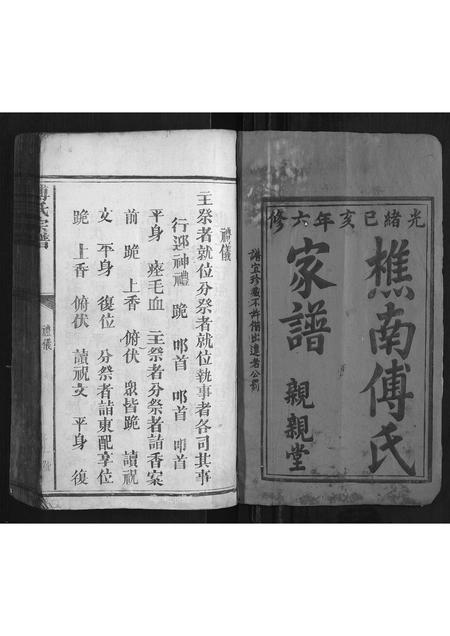 光緒己亥年六修
樵南傅氏
家譜
親親堂
譜宜珍藏不許借出違者公罰
禮儀
主祭者就位分祭者就位執事者各司其事
行迎神禮 跪 叩首 叩首 叩首
平身 瘞毛血 主祭者分祭者詣香案
前 跪 上香 俯伏 衆皆跪 讀祝
文 平身 復位 分祭者詣東配享位
跪 上香 俯伏 讀祝文 平身 復
傅氏宗譜
禮儀